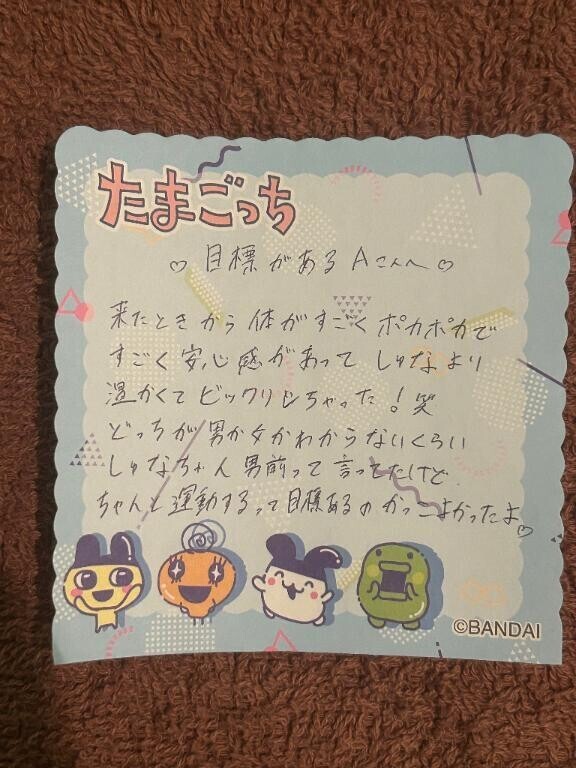 たまごっち
♡ 目標がある Aさんへ ♡
来たときから 体がすごく ポカポカで
すごく 安心感があって しゅなより
温かくて ビックリしちゃった！笑
どっちが 男か女かわからないくらい
しゅなちゃん 男前って 言ってたけど
ちゃんと 運動するって 目標あるの かっこよかったよ♡
©BANDAI